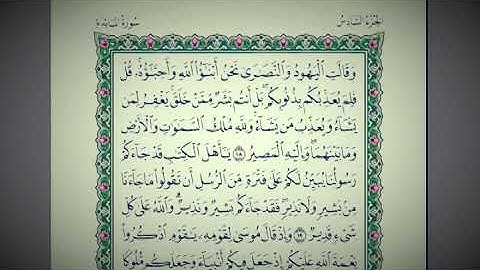 الجزء السادس
سورة المائدة
وَقَالَتِ الْيَهُودُ وَالنَّصَٰرَىٰ نَحْنُ أَبْنَٰٓؤُا۟ اللَّهِ وَأَحِبَّٰٓؤُهُۥ قُلْ
فَلِمَ يُعَذِّبُكُم بِذُنُوبِكُم بَلْ أَنتُم بَشَرٌ مِّمَّنْ خَلَقَ يَغْفِرُ لِمَن
يَشَآءُ وَيُعَذِّبُ مَن يَشَآءُ وَلِلَّهِ مُلْكُ السَّمَٰوَٰتِ وَالْأَرْضِ
وَمَا بَيْنَهُمَا وَإِلَيْهِ الْمَصِيرُ ١٨ يَٰٓأَهْلَ الْكِتَٰبِ قَدْ جَآءَكُمْ
رَسُولُنَا يُبَيِّنُ لَكُمْ عَلَىٰ فَتْرَةٍ مِّنَ الرُّسُلِ أَن تَقُولُوا۟ مَا جَآءَنَا
مِنۢ بَشِيرٍ وَلَا نَذِيرٍ فَقَدْ جَآءَكُم بَشِيرٌ وَنَذِيرٌ وَاللَّهُ عَلَىٰ كُلِّ
شَىْءٍ قَدِيرٌ ١٩ وَإِذْ قَالَ مُوسَىٰ لِقَوْمِهِۦ يَٰقَوْمِ اذْكُرُوا۟
نِعْمَةَ اللَّهِ عَلَيْكُمْ إِذْ جَعَلَ فِيكُمْ أَنۢبِيَآءَ وَجَعَلَكُم مُّلُوكًا